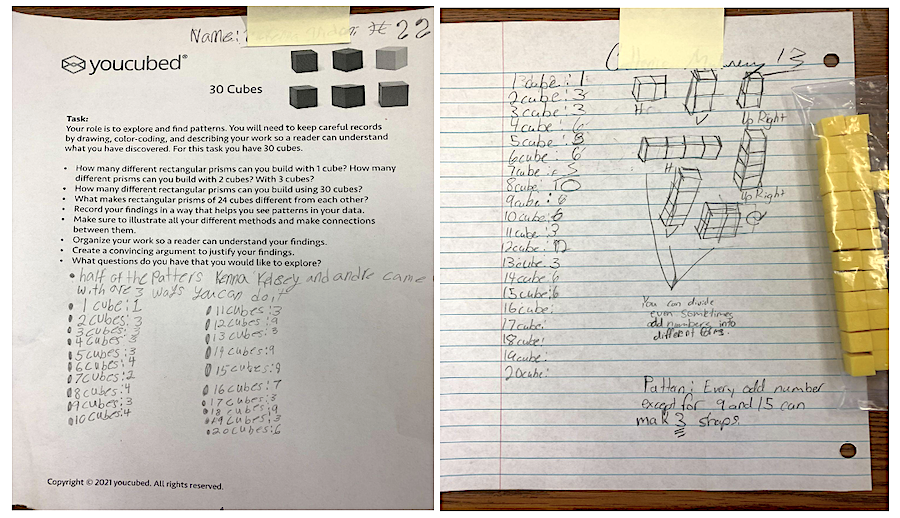 Name: # 22
youcubed®
30 Cubes
Task:
Your role is to explore and find patterns. You will need to keep careful records
by drawing, color-coding, and describing your work so a reader can understand
what you have discovered. For this task you have 30 cubes.
• How many different rectangular prisms can you build with 1 cube? How many
different prisms can you build with 2 cubes? With 3 cubes?
• How many different rectangular prisms can you build using 30 cubes?
• What makes rectangular prisms of 24 cubes different from each other?
• Record your findings in a way that helps you see patterns in your data.
• Make sure to illustrate all your different methods and make connections
between them.
• Organize your work so a reader can understand your findings.
• Create a convincing argument to justify your findings.
• What questions do you have that you would like to explore?
• half of the Patters Kenna Kelsey and andre came
with are 3 ways you can do it
• 1 cube: 1
• 2 cubes: 3
• 3 cubes: 3
• 4 cubes: 3
• 5 cubes: 3
• 6 cubes: 4
• 7 cubes: 2
• 8 cubes: 4
• 9 cubes: 3
• 10 cubes: 4
• 11 cubes: 3
• 12 cubes: 9
• 13 cubes: 3
• 14 cubes: 9
• 15 cubes: 9
• 16 cubes: 7
• 17 cubes: 3
• 18 cubes: 9
• 19 cubes: 3
• 20 cubes: 6
Copyright © 2021 youcubed. All rights reserved.
13
1 cube: 1
2 cube: 3
3 cube: 3
4 cube: 6
5 cube: 3
6 cube: 6
7 cube: 3
8 cube: 10
9 cube: 6
10 cube: 6
11 cube: 3
12 cube: 12
13 cube: 3
14 cube: 6
15 cube: 6
16 cube:
17 cube:
18 cube:
19 cube:
20 cube:
Up Right
H
Up Right
You can divide
even sometimes
odd numbers into
different
Pattan: Every odd number
except for 9 and 15 can
mak 3 shaps.